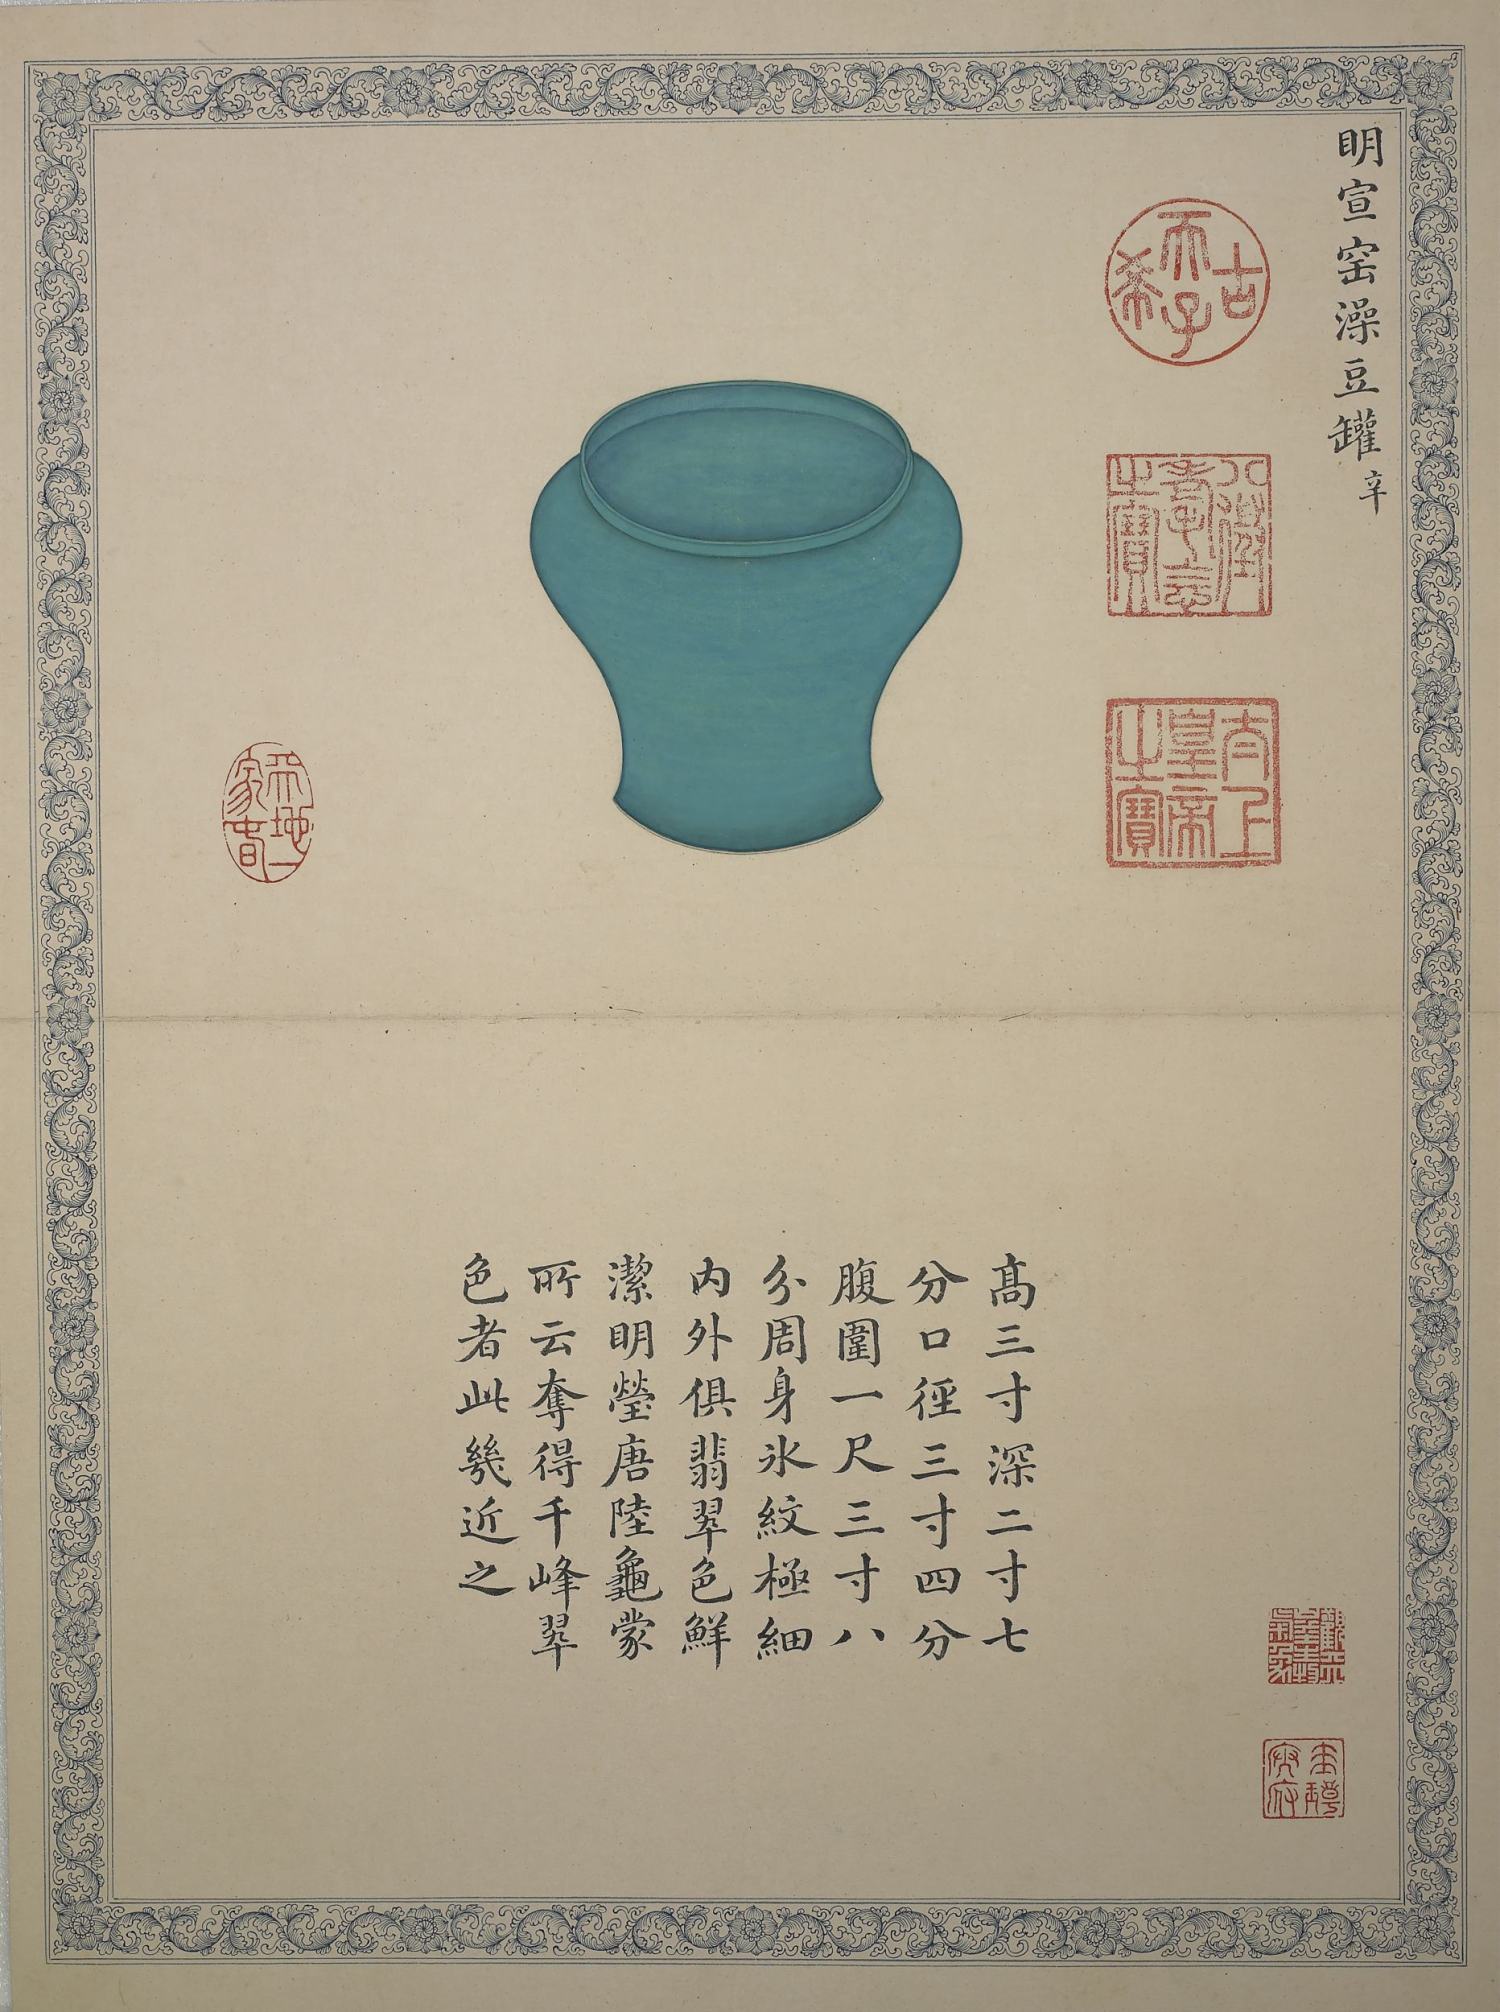 明宣窑澡豆罐 辛
古希天子
八徵耄念之寶
太上皇帝之寶
天地一家春
高三寸深二寸七
分口徑三寸四分
腹圍一尺三寸八
分周身氷紋極細
内外俱翡翠色鮮
潔明瑩唐陸龜蒙
所云奪得千峰翠
色者此幾近之